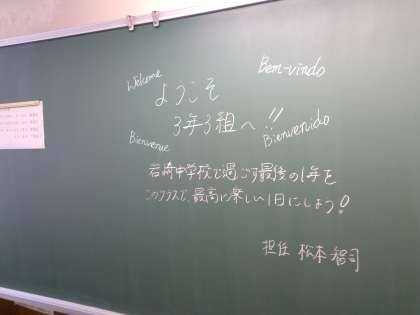 Welcome
Bem-vindo
ようこそ
3年3組へ!!
Bienvenue
Bienvenido
岩崎中学校で過ごす最後の1年を
このクラスで、最高に楽しい1日にしよう!
担任 松本 智司